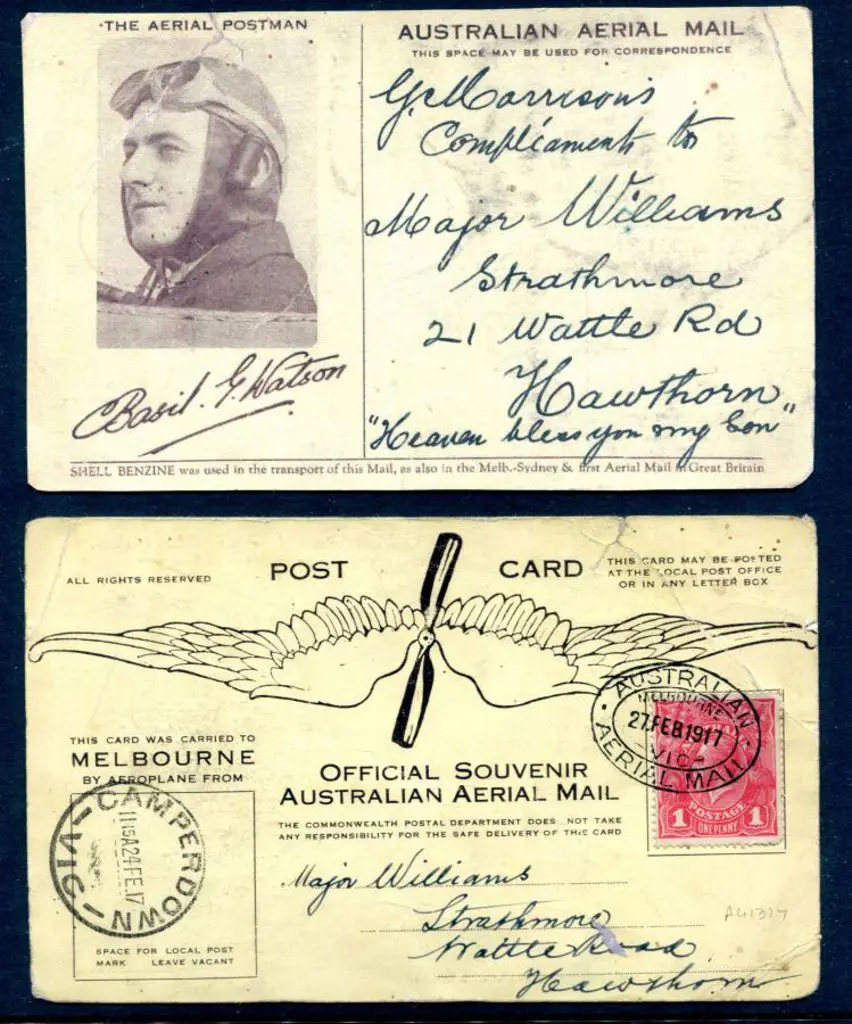 ·THE AERIAL POSTMAN
AUSTRALIAN AERIAL MAIL
THIS SPACE MAY BE USED FOR CORRESPONDENCE
G. Morrison's
Compliaments to
Major Williams
Strathmore
21 Wattle Rd
Hawthorn
"Heaven bless you my Son"
Basil. G. Watson
SHELL BENZINE was used in the transport of this Mail, as also in the Melb.-Sydney & first Aerial Mail in Great Britain
ALL RIGHTS RESERVED
POST CARD
THIS CARD MAY BE POSTED
AT THE LOCAL POST OFFICE
OR IN ANY LETTER BOX
AUSTRALIAN
MELBOURNE
27.FEB.1917
VIC-
AERIAL MAIL
POSTAGE
1 ONE PENNY 1
THIS CARD WAS CARRIED TO
MELBOURNE
BY AEROPLANE FROM
CAMPERDOWN
11 15A 24 FE.17
-VIC-
SPACE FOR LOCAL POST
MARK LEAVE VACANT
OFFICIAL SOUVENIR
AUSTRALIAN AERIAL MAIL
THE COMMONWEALTH POSTAL DEPARTMENT DOES NOT TAKE
ANY RESPONSIBILITY FOR THE SAFE DELIVERY OF THIS CARD
Major Williams
Strathmore
Wattle Road
Hawthorn